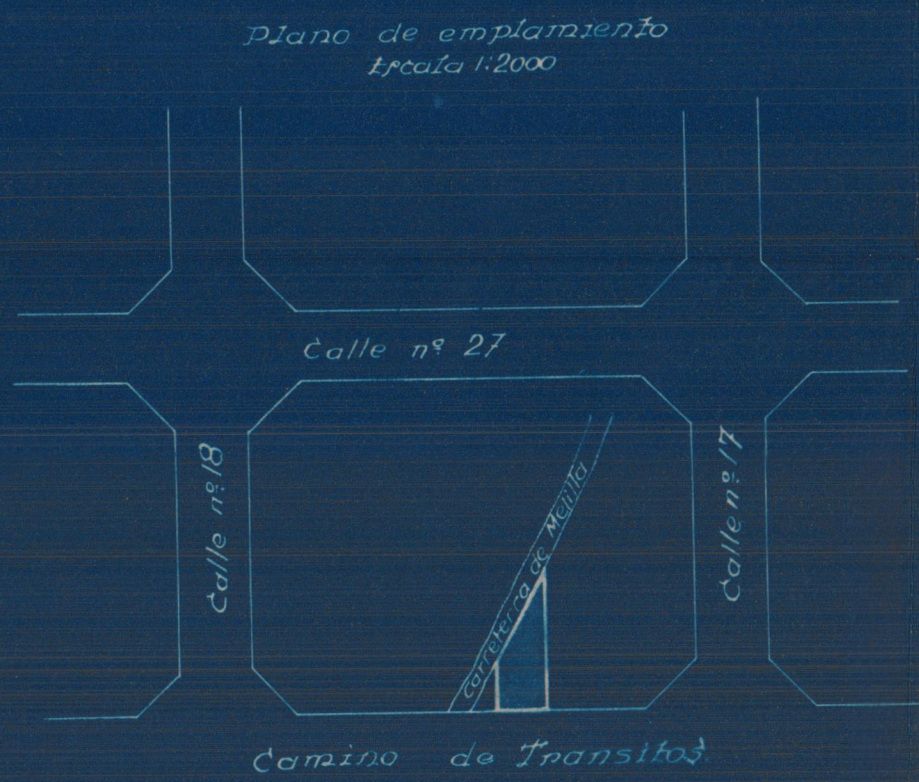 Plano de emplamiento
Escala 1:2000
Calle nº 27
Calle nº 18
Carreterra de Melilla
Calle nº 17
Camino de Transitos.